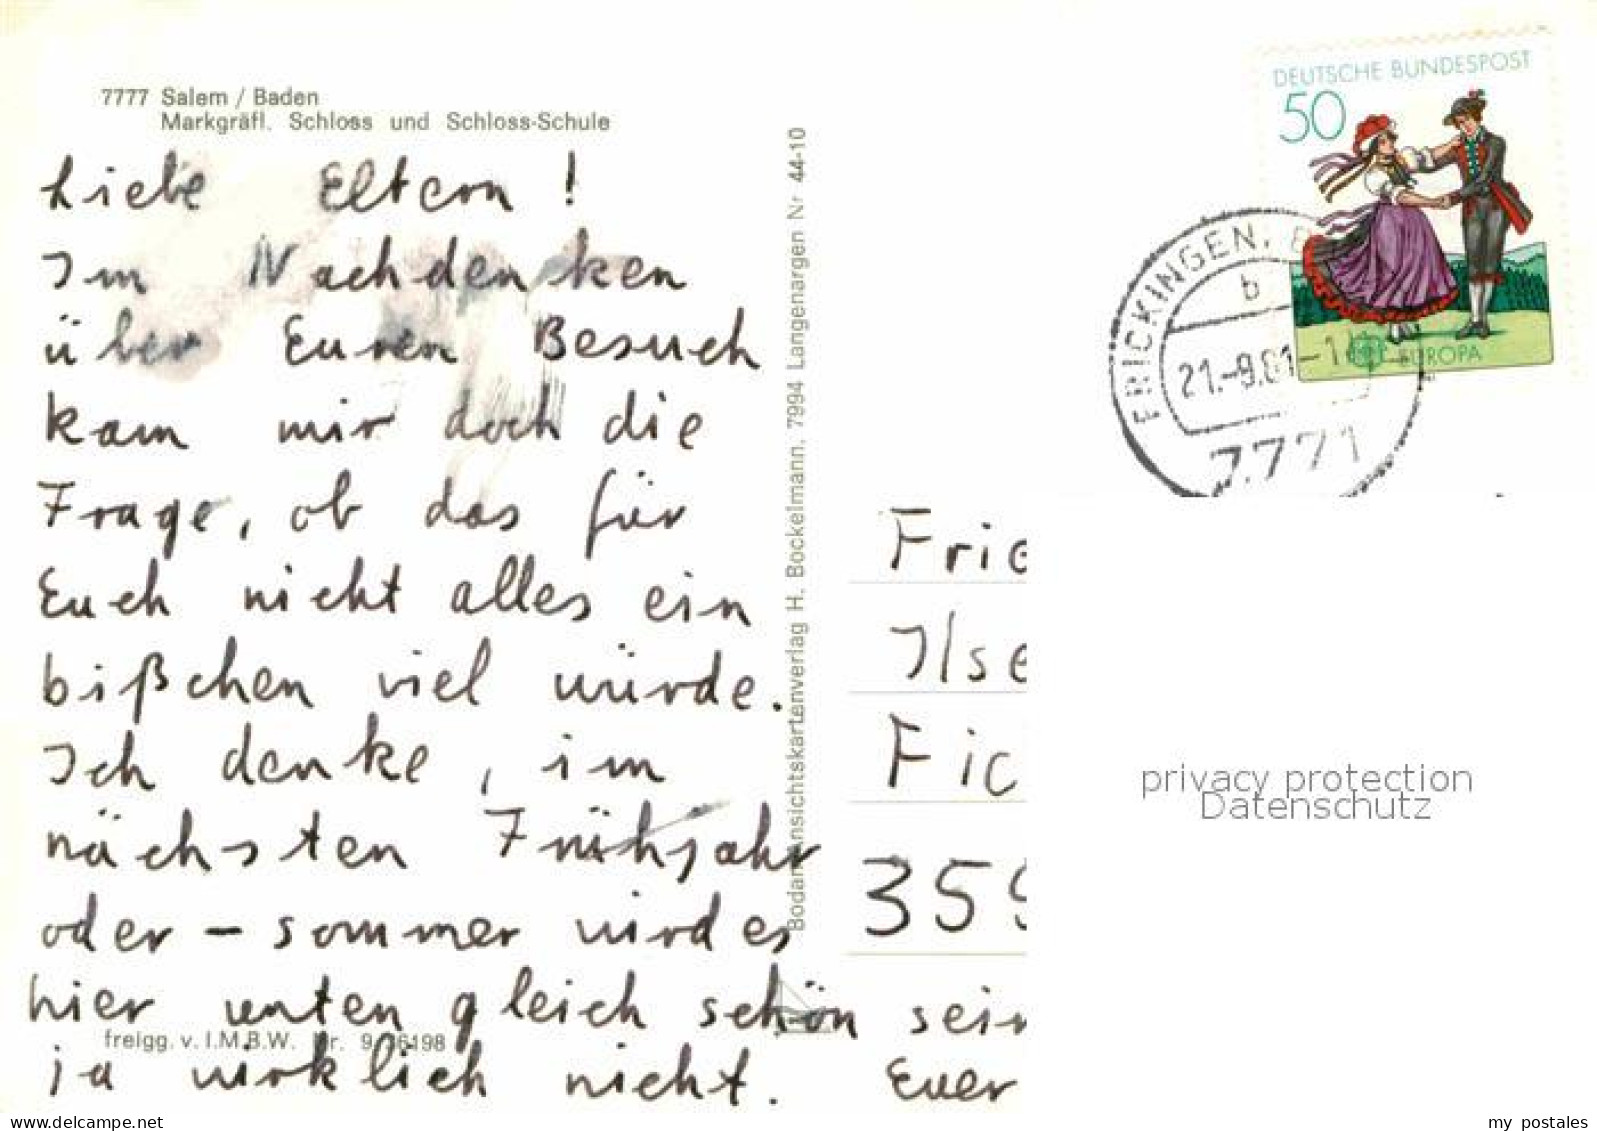 7777 Salem / Baden
Markgräfl. Schloss und Schloss-Schule
Liebe Eltern!
Im Nachdenken
über Euren Besuch
kam mir doch die
Frage, ob das für
Euch nicht alles ein
bißchen viel würde.
Ich denke, im
nächsten Frühjahr
oder - sommer wird es
hier unten gleich schön sein
ja wirklich nicht. Euer
freigg. v. I.M.B.W. Nr. 9
Bodan-Ansichtskartenverlag H. Bockelmann, 7994 Langenargen Nr 44-10
DEUTSCHE BUNDESPOST
50
EUROPA
FRICKINGEN,
b
21.-9.81-1
7771
Frie
Ilse
Fic
359
privacy protection
Datenschutz
my postales
www.delcampe.net